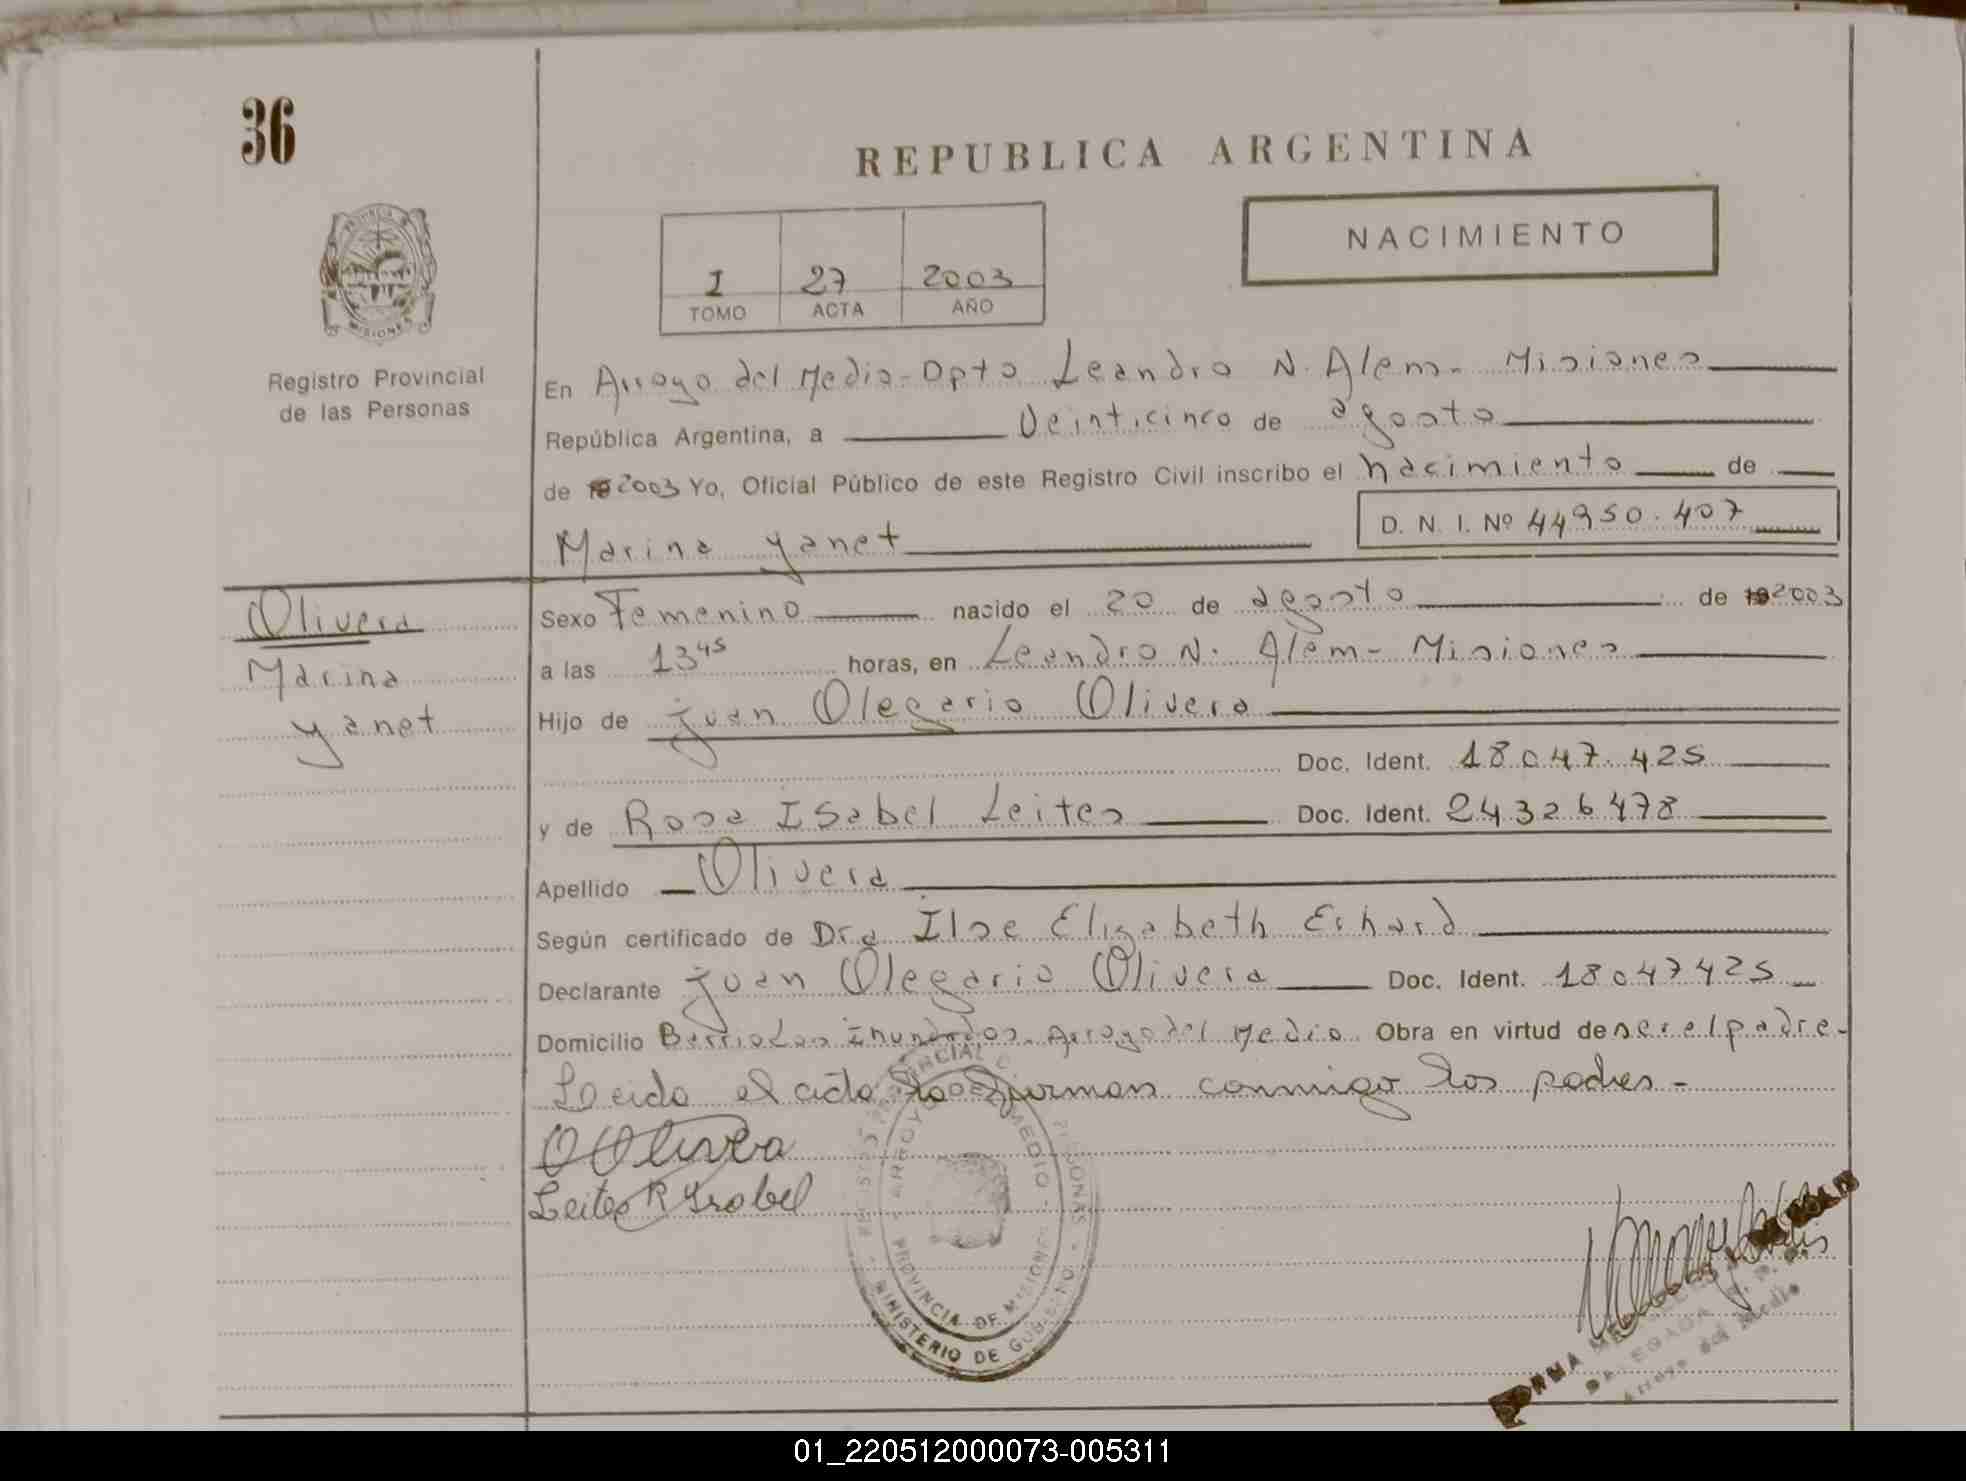 36
REPUBLICA ARGENTINA
NACIMIENTO
PROVINCIA DE
MISIONES
1 27 2003
TOMO ACTA AÑO
Registro Provincial
de las Personas
En Arroyo del Medio - Dpto Leandro N. Alem - Misiones
República Argentina, a Veinticinco de agosto
de 19 2003 Yo, Oficial Público de este Registro Civil inscribo el nacimiento de
Marina Yanet D. N. I. Nº 44950.407
Olivera
Marina
Yanet
Sexo Femenino nacido el 20 de agosto de 19 2003
a las 13 45 horas, en Leandro N. Alem - Misiones
Hijo de Juan Olegario Olivera
Doc. Ident. 18047.425
y de Rosa Isabel Leites Doc. Ident. 24326478
Apellido Olivera
Según certificado de Dra Ilse Elizabeth Erhard
Declarante Juan Olegario Olivera Doc. Ident. 18047425
Domicilio Barrio Los Inundados - Arroyo del Medio Obra en virtud de ser el padre -
Leida el acta la firman conmigo los padres -
O Olivera
Leites R Isabel
ARROYO DEL MEDIO - PROVINCIA DE MISIONES
MINISTERIO DE GOBIERNO
NORMA
DELEGADA
Arroyo del Medio
01_220512000073-005311